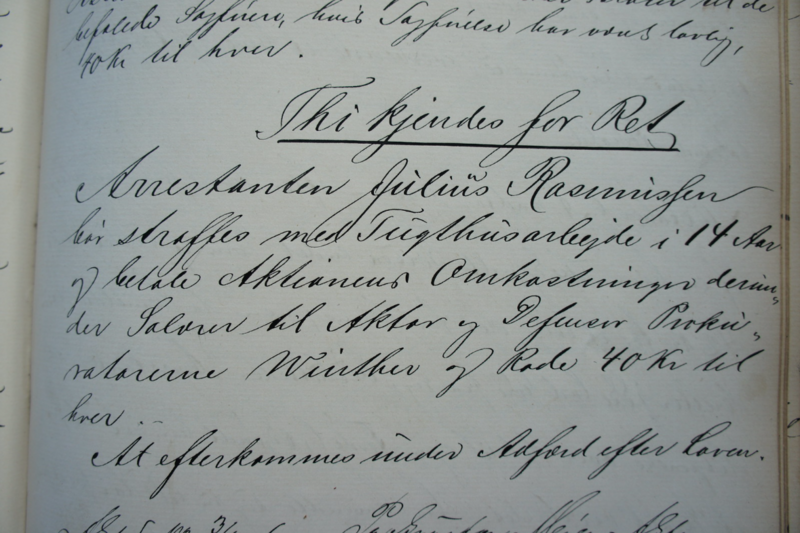 befalede Sagførere, hvis Sagførelse har været lovlig,
40 Kr til hver.
Thi kjendes for Ret
Arrestanten Julius Rasmussen
bør straffes med Tugthusarbejde i 14 Aar
og betale Aktionens Omkostninger derun„
der Salærer til Aktor og Defensor Proku„
ratorerne Winther og Rode 40 Kr til
hver
At efterkommes under Adfærd efter Loven.